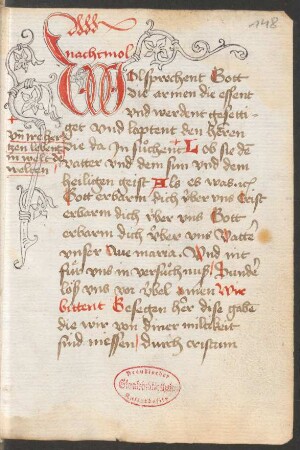 148
nachtmol
Wolsprechent Gott
die armen die essent
vnd werdent gesetti-
get vnd loptent den heren
die da in suͦchent Lob sie de
vatter vnd dem sun vnd dem
heiligen geist Als es was ⁊c
Gott erbarm dich vͥber vns Crist
erbarm dich vͥber vns Gott
erbarm dich vͥber vns Vatter
vnser Aue maria. Vnd nit
fuͤr vns in versuͦchnuß / Sunder
loͤß vns vor vͥbel amen Wir
bittent Gesegen her dise gabe
die wir von diner miltikeit
sind niessen / durch cristum
vnd ire hertzen
lebent
in welt
Preußischer